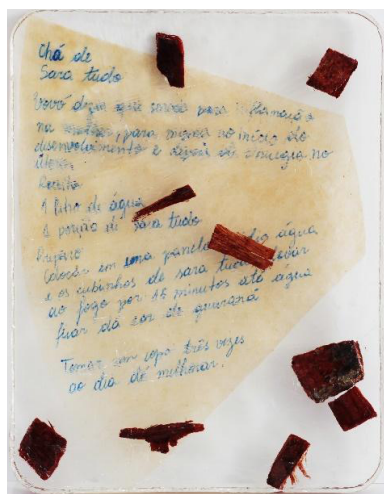 Chá de
Sara tudo
Vovó dizia que servia para inflamação
na mulher, para menina no início do
desenvolvimento e depois de cirurgia no
útero.
Receita
1 litro de água
1 porção de sara tudo
Preparo
Colocar em uma panela água
e os cubinhos de sara tudo levar
ao fogo por minutos até água
ficar da cor de guaraná
Tomar um copo três vezes
ao dia até melhorar.